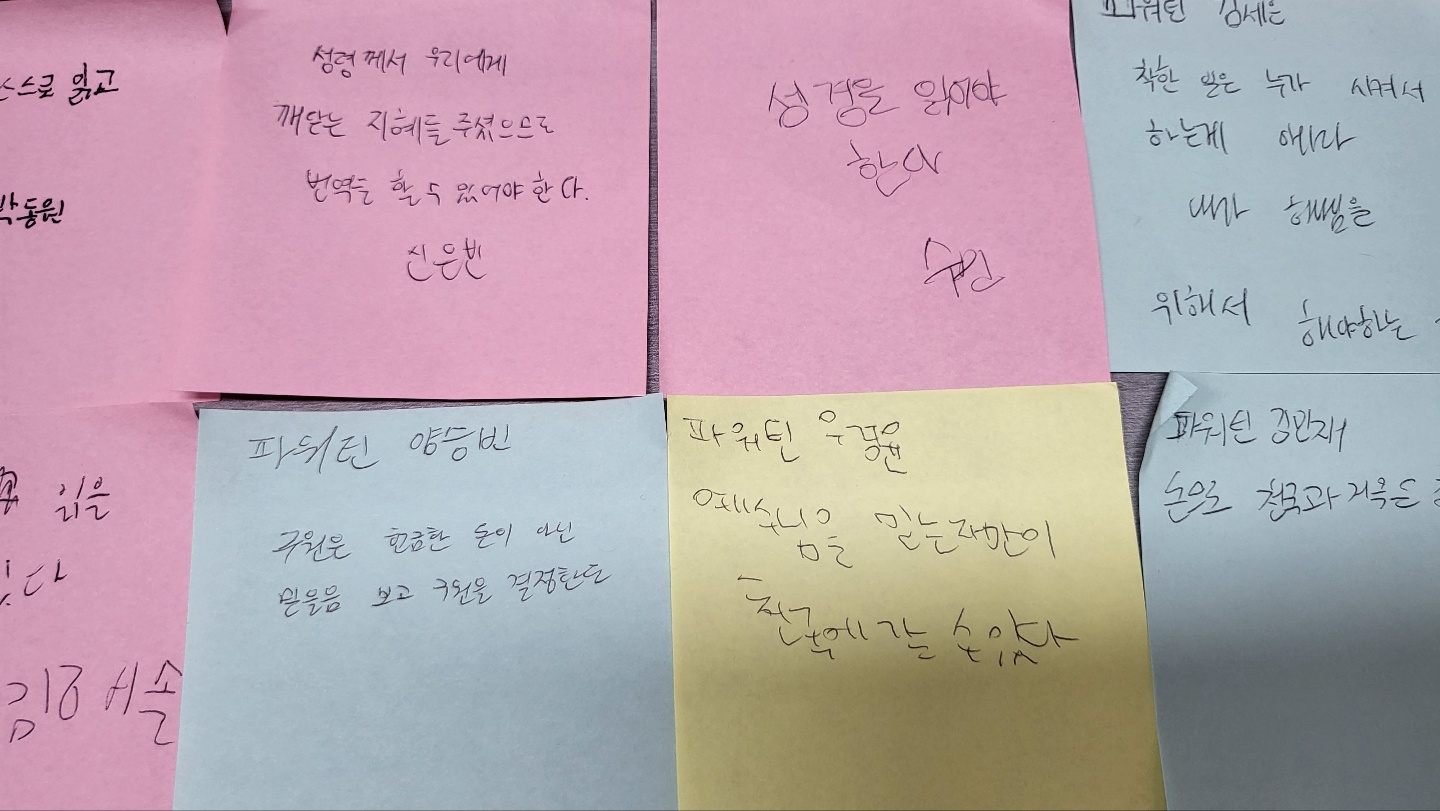 스스로 읽고
박동원
성령께서 우리에게
깨닫는 지혜를 주셨으므로
번역을 할 수 있어야 한다.
신은빈
성경을 읽어야
한다
수민
파워틴 김세은
착한 일은 누가 시켜서
하는게 애니라
내가 해쌤을
위해서 해야하는
읽을
있다
김예솔
파워틴 양승빈
구원은 헌금한 돈이 아닌
믿을음 보고 구원을 결정한다
파워틴 우경윤
예수님을 믿는자만이
천국에 갈 수 있다
파워틴 김민재
돈으로 천국과 지옥은